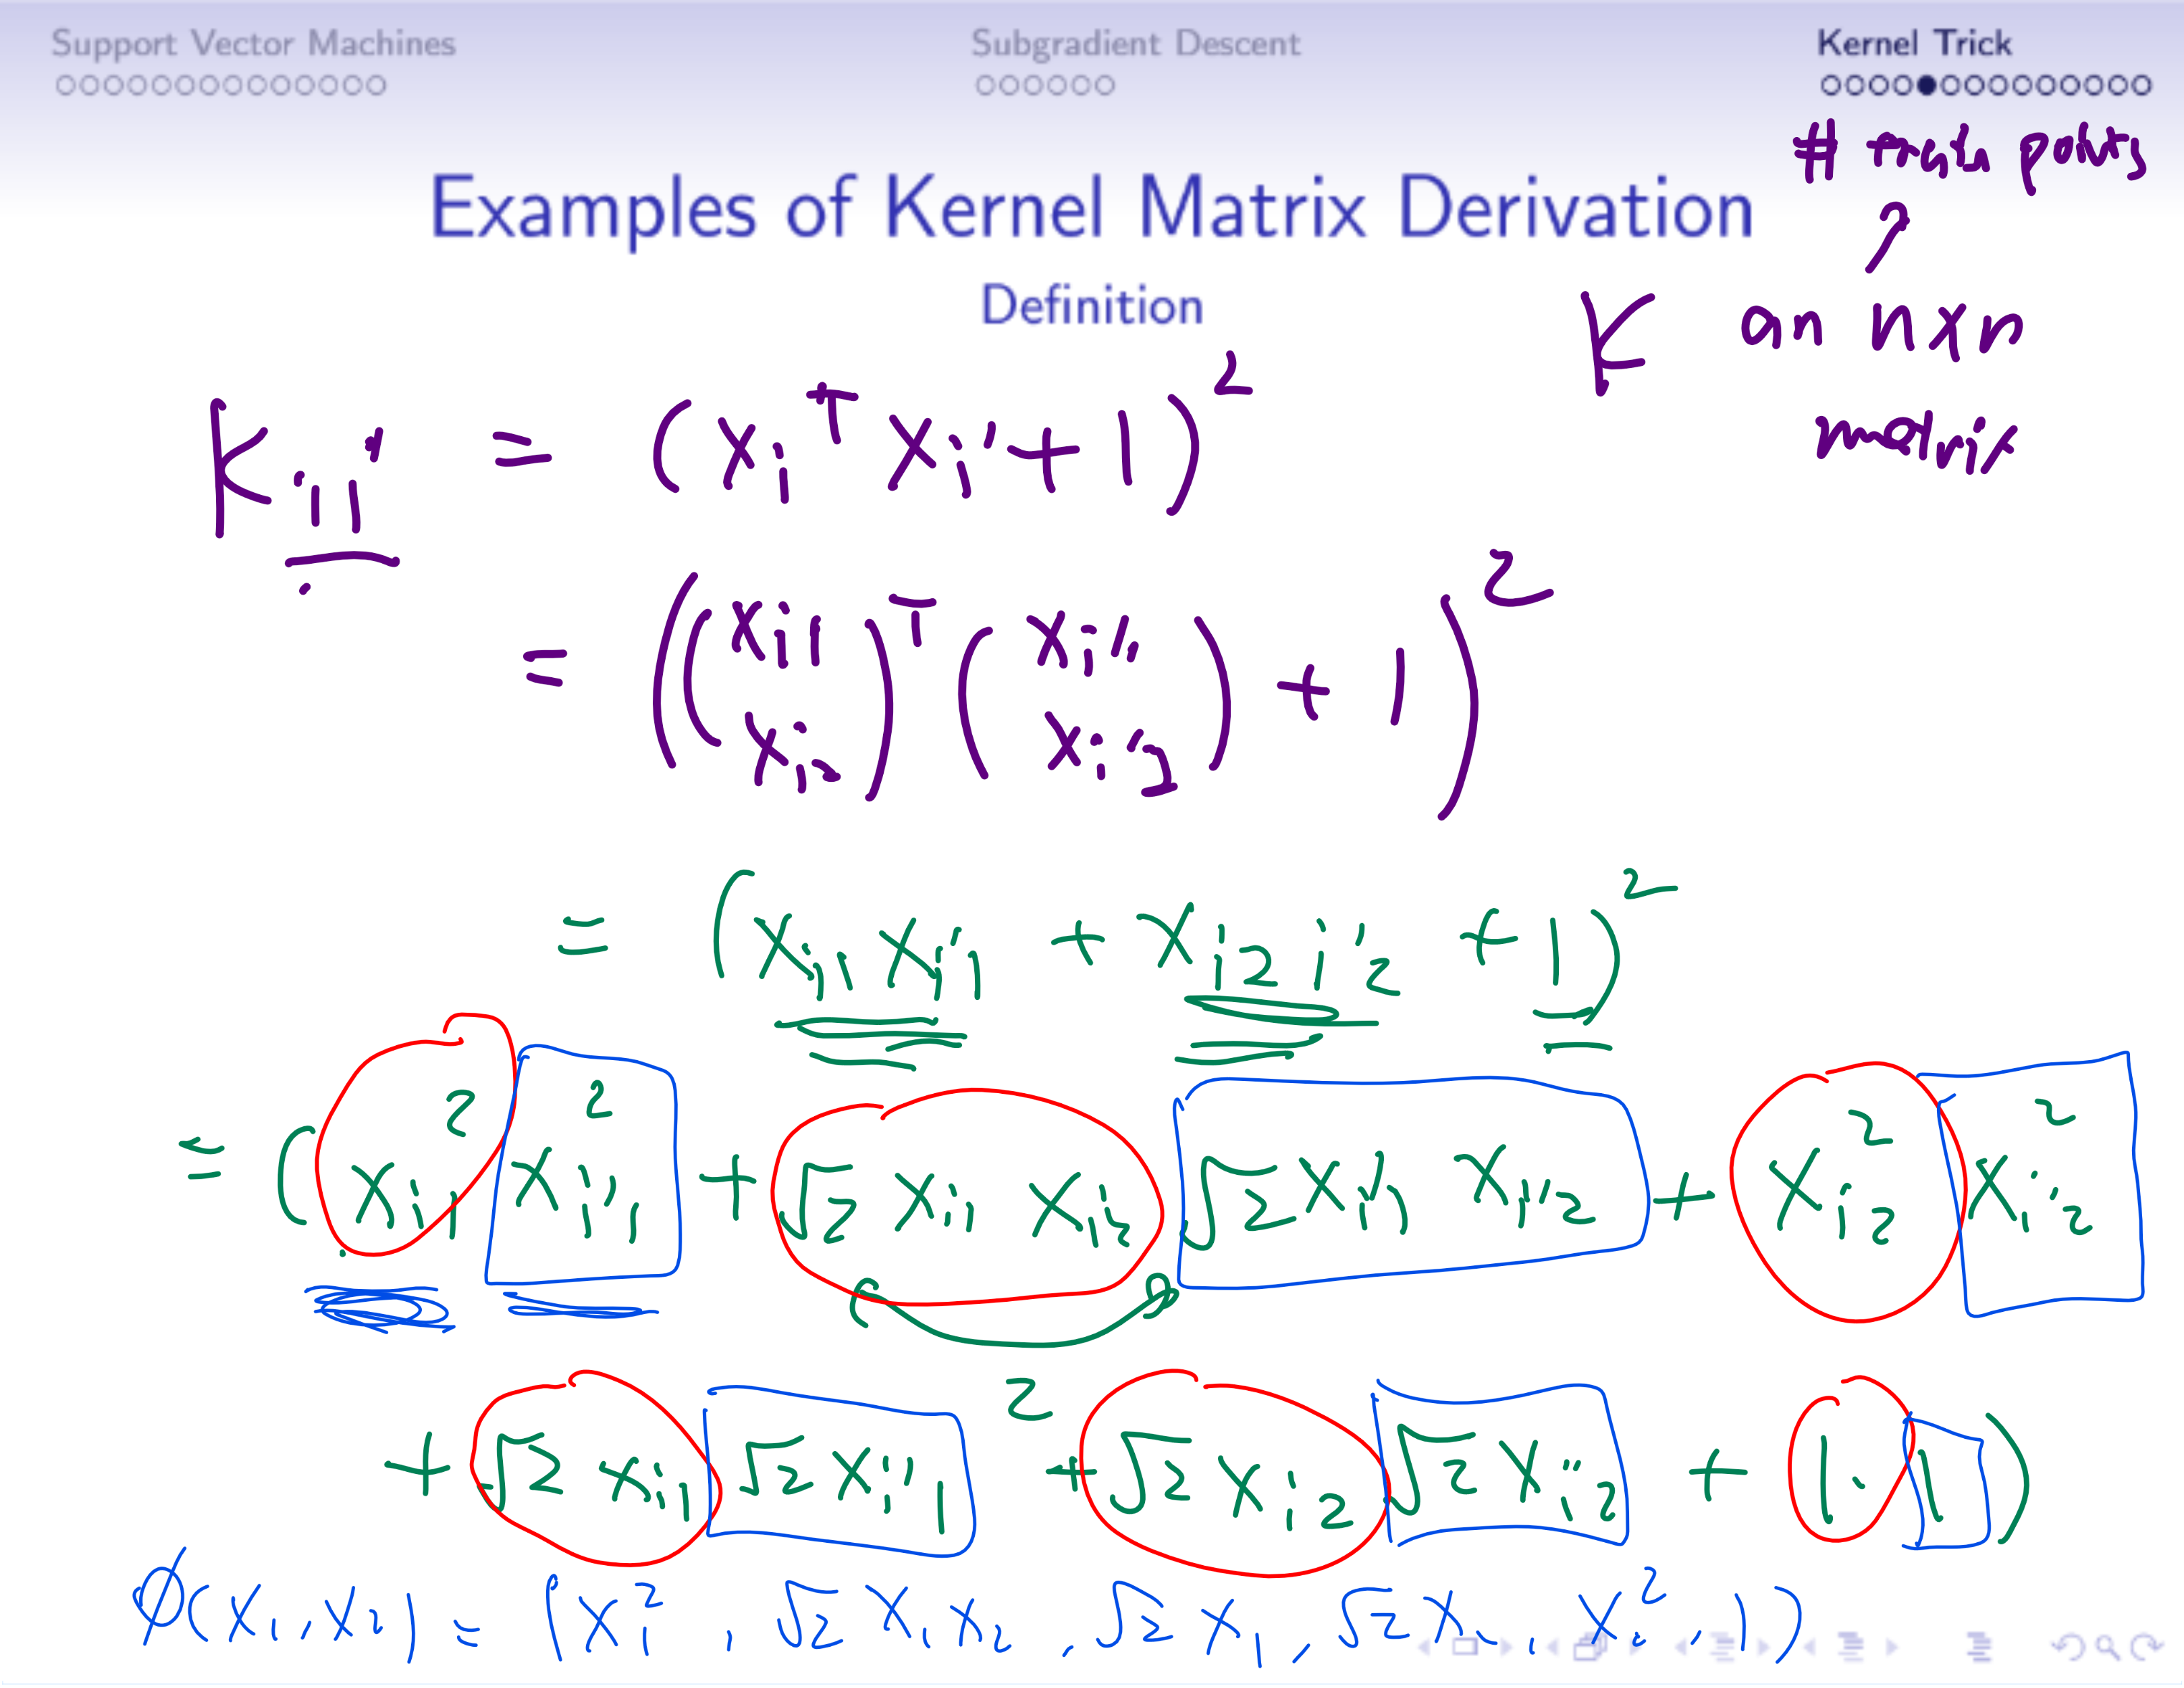 Support Vector Machines Subgradient Descent Kernel Trick
# train points
Examples of Kernel Matrix Derivation
Definition
K an n x n
matrix
K_{ii'} = (x_i^T x_{i'} + 1)^2
= ((x_{i1} x_{i2})^T (x_{i'1} x_{i'2}) + 1)^2
= (x_{i1} x_{i'1} + x_{i2} _{i'2} + 1)^2
= (x_{i1}^2 x_{i'1}^2 + √2 x_{i1} x_{i2} √2 x_{i'1} x_{i'2} + x_{i2}^2 x_{i'2}^2
+ √2 x_{i1} √2 x_{i'1} 2 + √2 x_{i2} √2 x_{i'2} + 1 · 1)
φ(x_1, x_2) = (x_1^2, √2 x_1 x_2, √2 x_1, √2 x_2, x_2^2, 1)